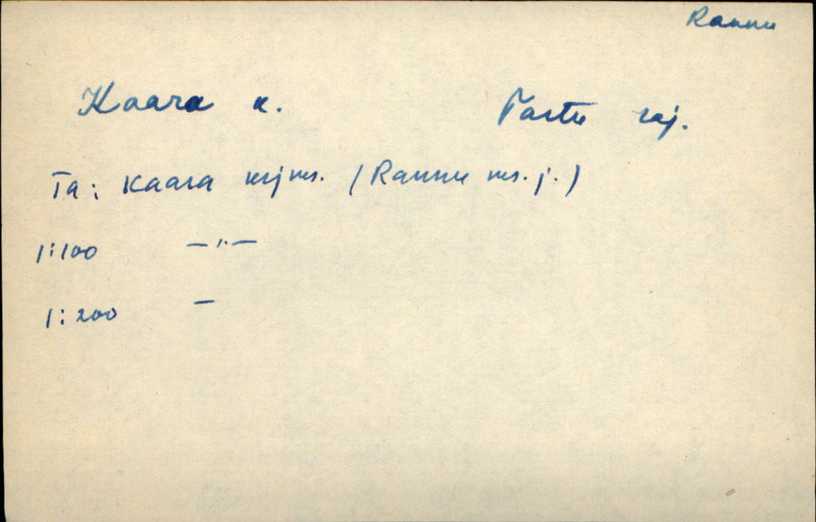 Rannu
Kaara k. Tartu raj.
Ta: Kaara krjms. (Rannu ms. j.)
1:100 —"—
1:200 —